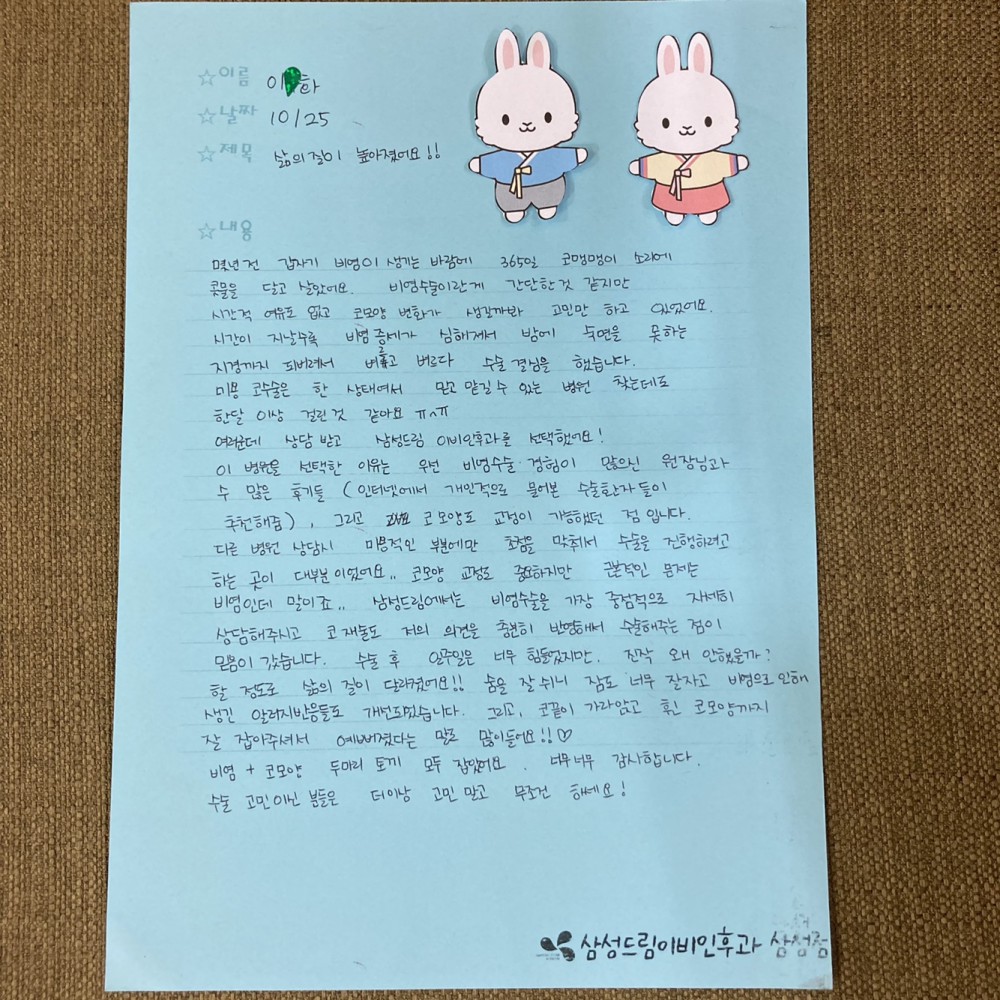 ☆이름 이 화
☆날짜 10/25
☆제목 삶의 질이 높아졌어요!!
☆내용
몇년 전 갑자기 비염이 생기는 바람에 365일 코맹맹이 소리에
콧물을 달고 살았어요. 비염수술이란게 간단한것 같지만
시간적 여유도 없고 코모양 변화가 생길까봐 고민만 하고 있었어요.
시간이 지날수록 비염 증세가 심해져서 밤에 숙면을 못하는
지경까지 되버려서 벼르고 벼르다 수술 결심을 했습니다.
미용 코수술은 한 상태여서 믿고 맡길 수 있는 병원 찾는데도
한달 이상 걸린것 같아요 ㅠㅅㅠ
여러군데 상담 받고 삼성드림 이비인후과를 선택했어요!
이 병원을 선택한 이유는 우선 비염수술 경험이 많으신 원장님과
수 많은 후기들 (인터넷에서 개인적으로 물어본 수술환자들이
추천해줌), 그리고 코모양도 교정이 가능했던 점 입니다.
다른 병원 상담시 미용적인 부분에만 초점을 맞춰서 수술을 진행하려고
하는 곳이 대부분이었어요.. 코모양 교정도 중요하지만 근본적인 문제는
비염인데 말이죠.. 삼성드림에서는 비염수술을 가장 중점적으로 자세히
상담해주시고 코 재수술도 저의 의견을 충분히 반영해서 수술해주는 점이
믿음이 갔습니다. 수술 후 일주일은 너무 힘들었지만, 진작 왜 안했을까?
할 정도로 삶의 질이 달라졌어요!! 숨을 잘 쉬니 잠도 너무 잘자고 비염으로 인해
생긴 알러지반응들도 개선되었습니다. 그리고, 코끝이 가라앉고 휜 코모양까지
잘 잡아주셔서 예뻐졌다는 말도 많이들어요!!♡
비염 + 코모양 두마리 토끼 모두 잡았어요. 너무너무 감사합니다.
수술 고민이신 분들은 더이상 고민 말고 무조건 하세요!
삼성드림이비인후과 삼성점